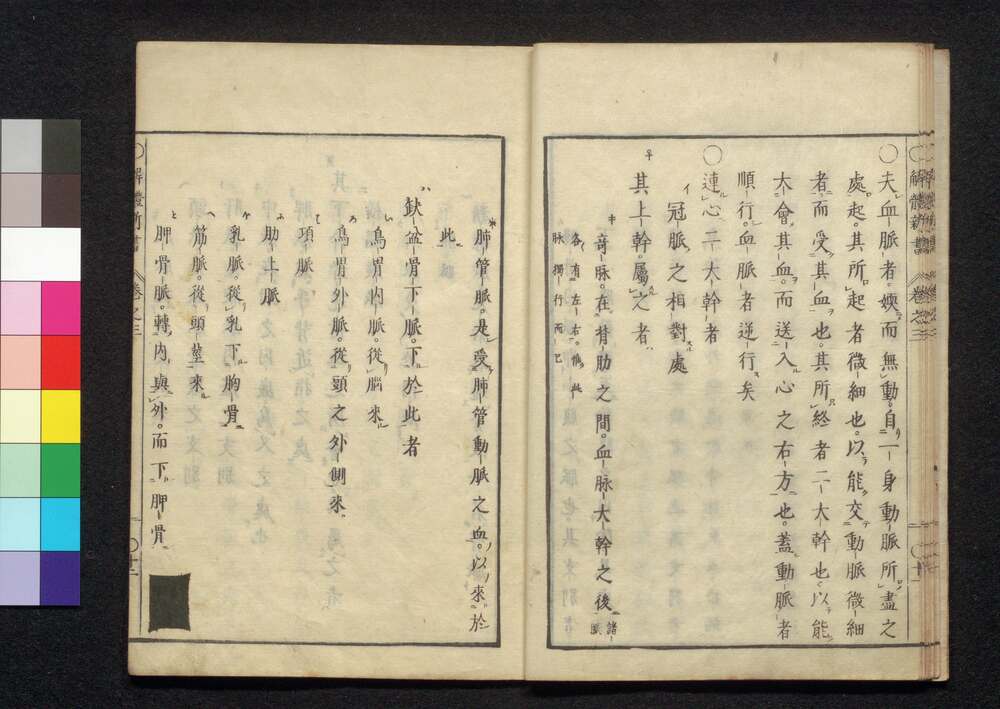 解體新書 卷之三 〇十一
〇夫血脈者。媆而無動。自一身動脈所盡之
處起。其所起者微細也。以能交動脈微細
者。而受其血也。其所終者二大幹也。以能
大會其血。而送入心之右方也。蓋動脈者
順行。血脈者逆行矣
〇連心二大幹者
イ 冠脈之相對處
其上幹屬之者
奇脈。在脊肋之間。血脈大幹之後 諸脈
各有左右。惟此
脈獨行而已
肺管脈。是受肺管動脈之血。以來於
此
ハ 缺盆骨下脈。下於此者
烏胃内脈。從腦來
烏胃外脈。從頭之外側來
項脈
肋上脈
乳脈。從乳下胸骨
筋脈。從頭
來
と 胛骨脈。轉内與外。而下胛骨
〇解體新書 卷之三 〇十二